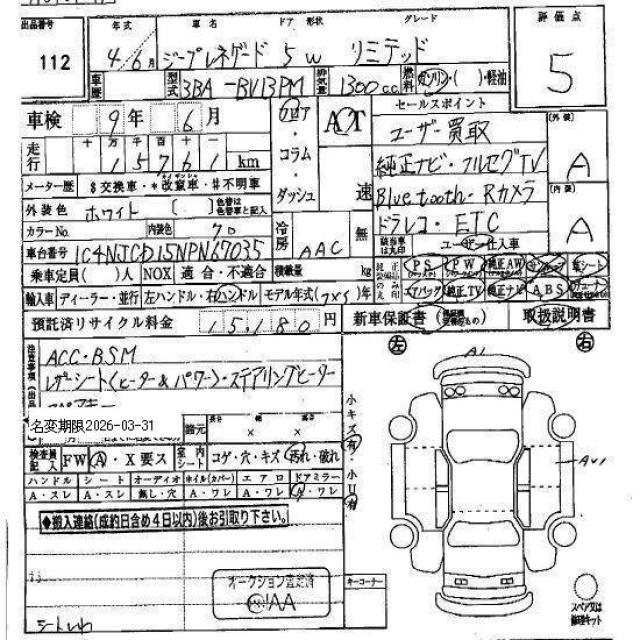 出品番号 112
年式 車名 ドア 形状 グレード
4/6月 ジープレネゲード 5W リミテッド
評価点 5
車歴 型式 3BA-BV13PM 排気量 1300cc 燃料 ガソリン・( )・軽油
車検 9年 6月
フロア・コラム・ダッシュ AT 速
セールスポイント
ユーザー買取
純正ナビ・フルセグTV
Bluetooth・Rカメラ
ドラレコ・ETC
走行 十万千百十一 15761 km
メーター歴 $交換車・*改竄車・#不明車
外装 A
内装 A
外装色 ホワイト [ ] 色替は色替車と記入
カラーNo 内装色 70
冷房 AAC 無
該当事は丸印 ユーザー仕入車
車台番号 1C4NJCD15NPN67035
乗車定員( )人 NOX 適合・不適合 積載量 kg
純正 PS PW 純正AW 革シート
エアバッグ 純正TV 純正ナビ ABS
輸入車 ディーラー・並行 左ハンドル・右ハンドル モデル年式
預託済リサイクル料金 15,180円
新車保証書 取扱説明書
注意事項
ACC・BSM
レザーシート(ヒーター&パワー)・ステアリングヒーター
名変期限2026-03-31
諸元 長さ 幅 高さ × ×
小キズ有・小凹有
検査員記入 FW A・X要ス 室内シート コゲ・穴・キズ・汚れ・破れ
ハンドル シート オーディオ ホイル(カバー) エアロ ドアミラー
A・スレ A・スレ 無し・穴 A・ワレ A・ワレ A・ワレ
◆搬入連絡(成約日含め4日以内)後お引取り下さい。
オークション査定済
JAA
キーコーナー
シートしわ
左 右
A1
AU1
スペア又は修理キット